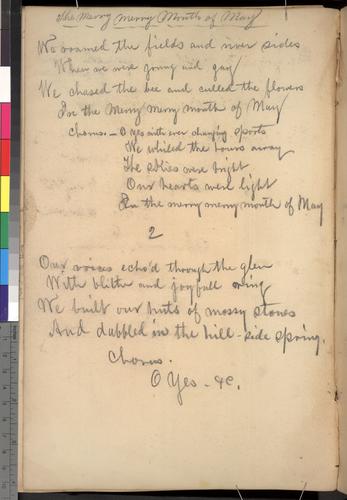 The Merry Merry Month of May
We roamed the fields and river sides
When we were young and gay
We chased the bee and culled the flowers
In the Merry merry month of May
Chorus. — O yes with ever changing sports
We whiled the hours away
The skies were bright
Our hearts were light
In the merry merry month of May
2
Our voices echo'd through the glen
With blithe and joyfull ring
We built our huts of mossy stones
And dabbled in the hill-side spring.
Chorus.
O Yes - &c.